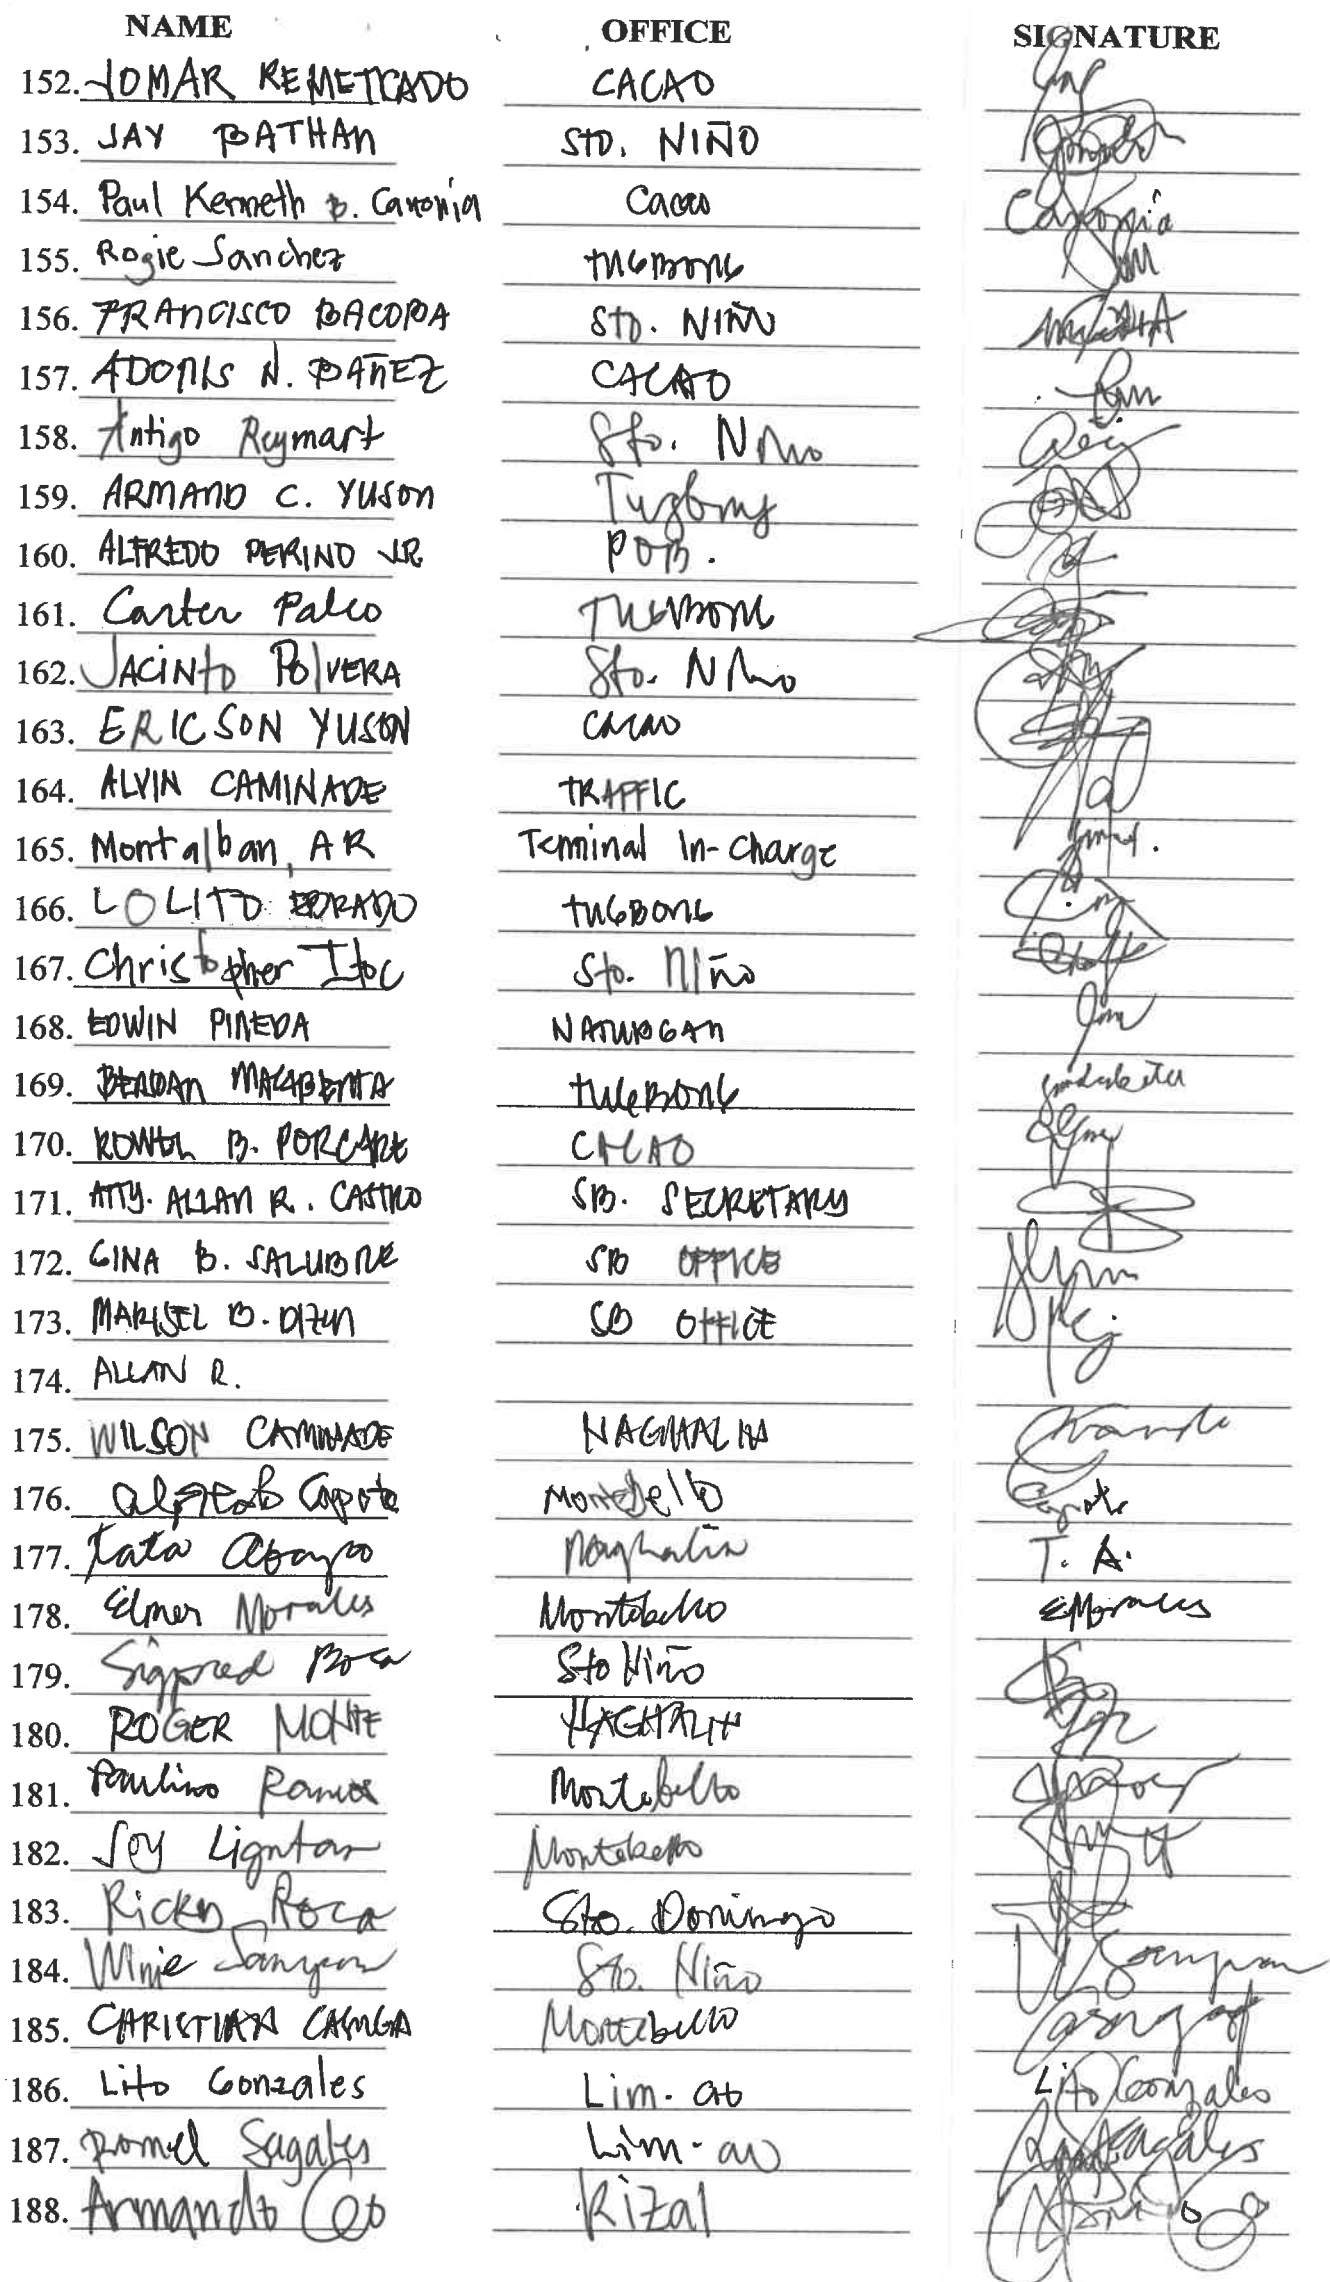 NAME OFFICE SIGNATURE
152. JOMAR REMETICADO CACAO
153. JAY BATHAN STO. NIÑO
154. Paul Kenneth B. Canonia Cacao Canonia
155. Rogie Sanchez TUGBONG
156. FRANCISCO BACOBA STO. NIÑO
157. ADONIS N. BAÑEZ CACAO
158. Antigo Reymart Sto. Niño
159. ARMAND C. YUSON Tugbong
160. ALFREDO PERINO JR POB.
161. Carter Palco TUGBONG
162. JACINTO POLVERA Sto. Niño
163. ERICSON YUSON CACAO
164. ALVIN CAMINADE TRAFFIC
165. Montalban, AR Terminal In-charge
166. LOLITO EDRADO TUGBONG
167. Christopher Itoc Sto. Niño
168. EDWIN PINEDA NATUBGAN
169. MACABENTA TUGBONG
170. ROWEL B. CACAO
171. ATTY. ALLAN R. CASTRO SB. SECRETARY
172. GINA B. SALUBRE SB OFFICE
173. MARISEL B. DIZON SB OFFICE
174. ALLAN R.
175. WILSON CAMINADE NAGHALIN
176. Alfredo Capote Montebello Capote
177. Tata Abayo Naghalin T. A.
178. Elmer Morales Montebello EMorales
179. Sigpred Roca Sto Niño
180. ROGER MONTE NAGHALIN
181. Paulino Ramos Montebello
182. Joy Ligntas Montebello
183. Ricky Roca Sto. Domingo
184. Winie Sampan Sto. Niño Sampan
185. CHRISTIAN CASUGA Montebello
186. Lito Gonzales Lim-ao Lito Gonzales
187. Romel Sagales Lim-ao Sagales
188. Armando Co Rizal